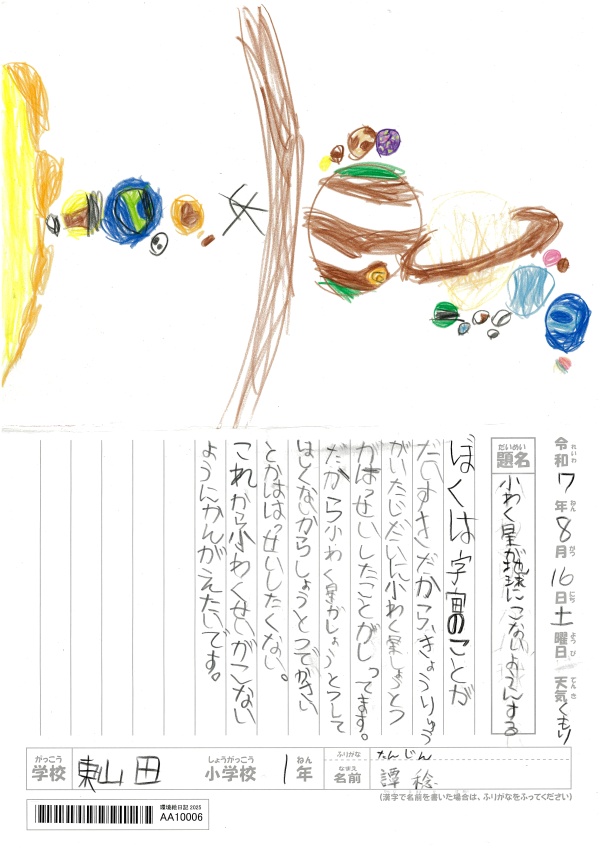 令和7年8月16日土曜日 天気くもり
れいわ ねん がつ にち ようび てんき
だいめい
題名 小わく星が地球にこないようにする
ぼくは宇宙のことが
だいすきだから、きょうりゅう
がいたじだいに小わく星しょうとつ
がはっせいしたことがしってます。
だから小わく星がしょうとつして
ほしくないからしょうとつでかさい
とかははっせいしたくない。
これから小わくせいがこない
ようにかんがえたいです。
がっこう しょうがっこう ねん ふりがな たんじん
学校 東山田 小学校 1年 なまえ 名前 譚 稔
(漢字で名前を書いた場合は、ふりがなをふってください)
環境絵日記 2025
AA10006